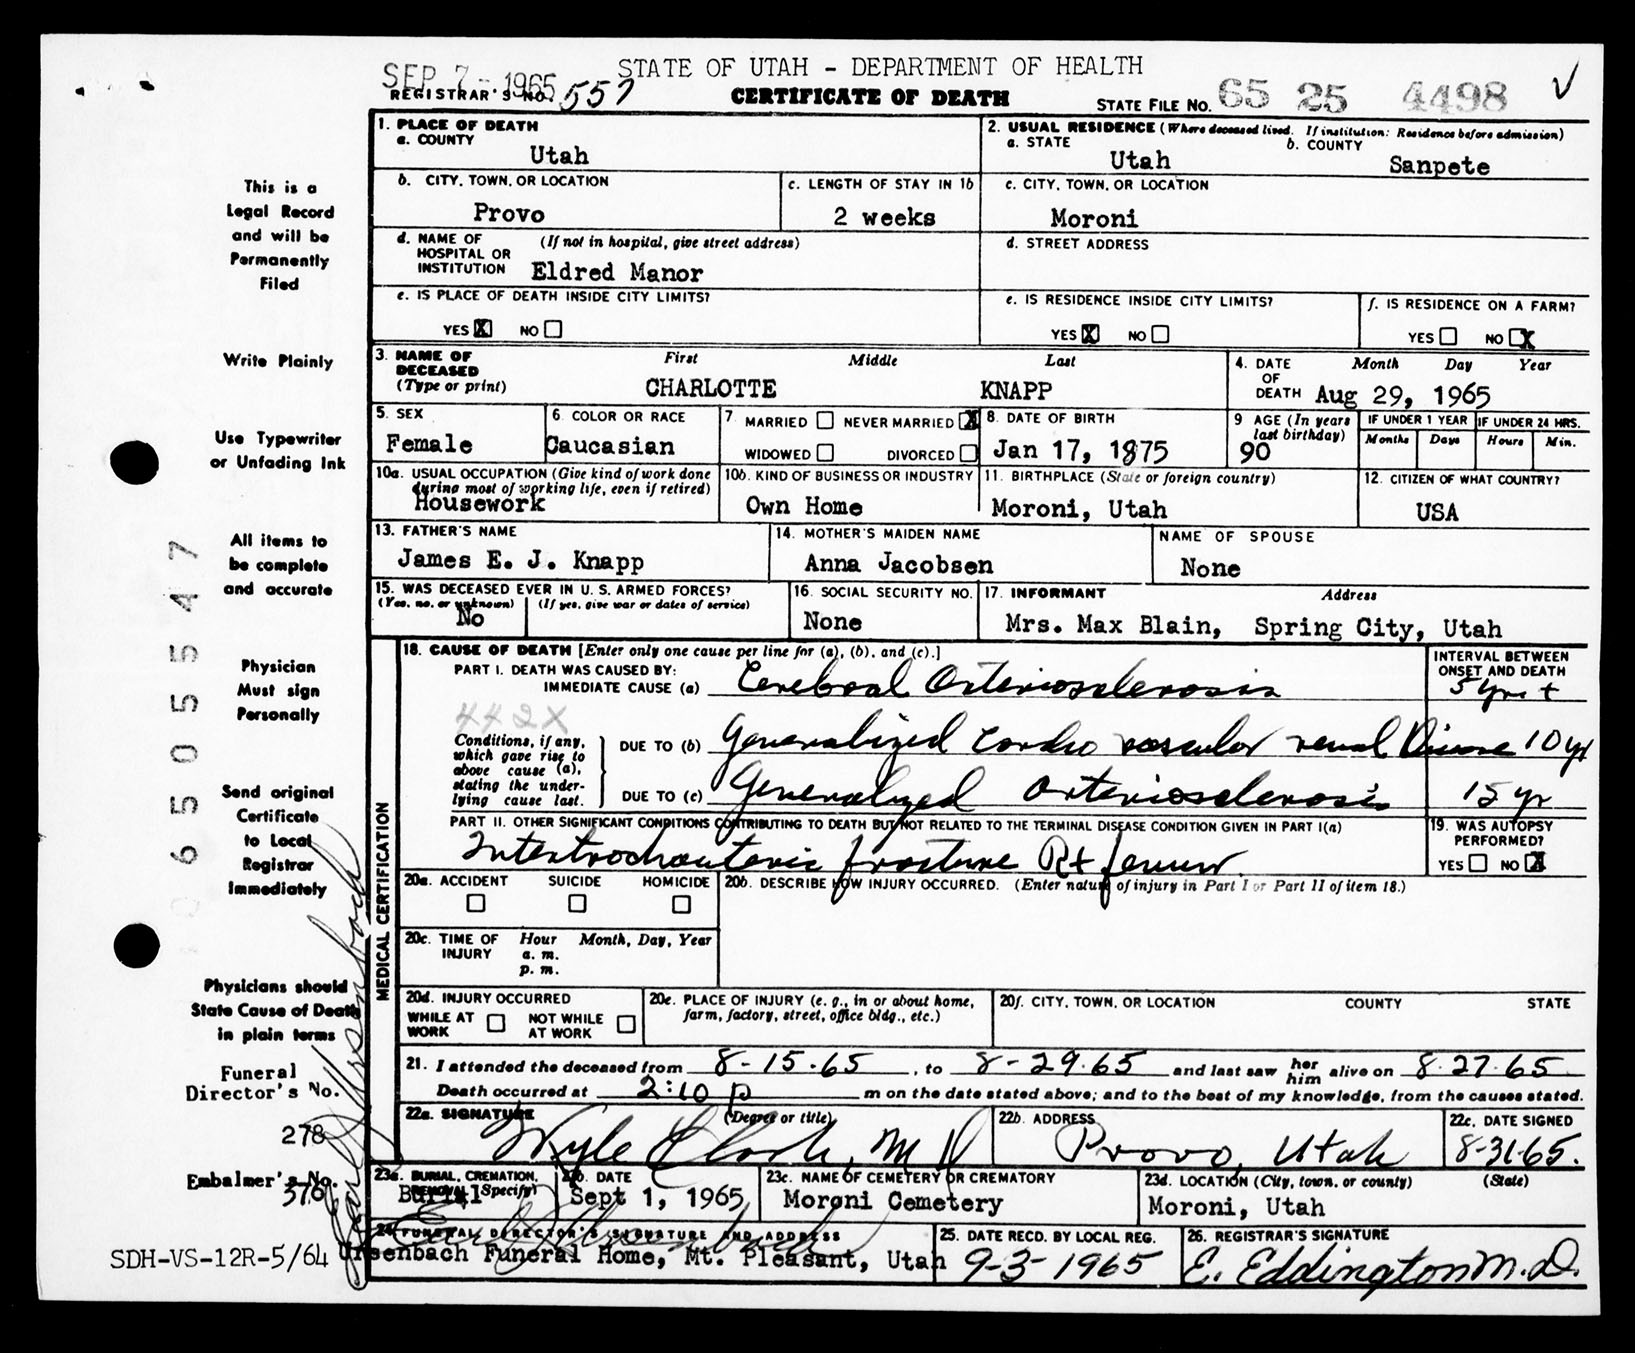 SEP 7 - 1965
STATE OF UTAH - DEPARTMENT OF HEALTH
REGISTRAR'S NO. 557
CERTIFICATE OF DEATH
STATE FILE NO. 65 25 4498
1. PLACE OF DEATH
a. COUNTY
Utah
2. USUAL RESIDENCE (Where deceased lived. If institution: Residence before admission)
a. STATE
Utah
b. COUNTY
Sanpete
This is a
Legal Record
and will be
Permanently
Filed
b. CITY, TOWN, OR LOCATION
Provo
c. LENGTH OF STAY IN 1b
2 weeks
c. CITY, TOWN, OR LOCATION
Moroni
d. NAME OF HOSPITAL OR INSTITUTION
(If not in hospital, give street address)
Eldred Manor
d. STREET ADDRESS
e. IS PLACE OF DEATH INSIDE CITY LIMITS?
YES X NO
e. IS RESIDENCE INSIDE CITY LIMITS?
YES X NO
f. IS RESIDENCE ON A FARM?
YES NO X
Write Plainly
3. NAME OF DECEASED
(Type or print)
First Middle Last
CHARLOTTE KNAPP
4. DATE OF DEATH
Month Day Year
Aug 29, 1965
Use Typewriter
or Unfading Ink
5. SEX
Female
6. COLOR OR RACE
Caucasian
7 MARRIED NEVER MARRIED X
WIDOWED DIVORCED
8. DATE OF BIRTH
Jan 17, 1875
9 AGE (In years last birthday)
90
IF UNDER 1 YEAR
Months Days
IF UNDER 24 HRS.
Hours Min.
10a. USUAL OCCUPATION (Give kind of work done
during most of working life, even if retired)
Housework
10b. KIND OF BUSINESS OR INDUSTRY
Own Home
11. BIRTHPLACE (State or foreign country)
Moroni, Utah
12. CITIZEN OF WHAT COUNTRY?
USA
All items to
be complete
and accurate
13. FATHER'S NAME
James E. J. Knapp
14. MOTHER'S MAIDEN NAME
Anna Jacobsen
NAME OF SPOUSE
None
15. WAS DECEASED EVER IN U. S. ARMED FORCES?
(Yes, no, or unknown)
No
(If yes, give war or dates of service)
16. SOCIAL SECURITY NO.
None
17. INFORMANT Address
Mrs. Max Blain, Spring City, Utah
0650 5547
Physician
Must sign
Personally
MEDICAL CERTIFICATION
18. CAUSE OF DEATH [Enter only one cause per line for (a), (b), and (c).]
PART I. DEATH WAS CAUSED BY:
IMMEDIATE CAUSE (a) Cerebral Arteriosclerosis
INTERVAL BETWEEN
ONSET AND DEATH
5 yrs +
442X
Conditions, if any,
which gave rise to
above cause (a),
stating the under-
lying cause last.
DUE TO (b) Generalized cardio vascular renal Disease 10 yr
DUE TO (c) Generalized arteriosclerosis 15 yr
Send original
Certificate
to Local
Registrar
Immediately
PART II. OTHER SIGNIFICANT CONDITIONS CONTRIBUTING TO DEATH BUT NOT RELATED TO THE TERMINAL DISEASE CONDITION GIVEN IN PART I(a)
Intertrochanteric fracture Rt femur
19. WAS AUTOPSY PERFORMED?
YES NO X
20a. ACCIDENT SUICIDE HOMICIDE
20b. DESCRIBE HOW INJURY OCCURRED. (Enter nature of injury in Part I or Part II of item 18.)
20c. TIME OF INJURY
Hour Month, Day, Year
a. m.
p. m.
Physicians should
State Cause of Death
in plain terms
20d. INJURY OCCURRED
WHILE AT WORK NOT WHILE AT WORK
20e. PLACE OF INJURY (e. g., in or about home,
farm, factory, street, office bldg., etc.)
20f. CITY, TOWN, OR LOCATION COUNTY STATE
21. I attended the deceased from 8-15-65, to 8-29-65 and last saw her him alive on 8-27-65
Death occurred at 2:10 p m on the date stated above; and to the best of my knowledge, from the causes stated.
Funeral
Director's No.
278
22a. SIGNATURE (Degree or title)
Wyle Clark, M D
22b. ADDRESS
Provo, Utah
22c. DATE SIGNED
8-31-65.
Embalmer's No.
376
23a. BURIAL, CREMATION, REMOVAL (Specify)
Burial
23b. DATE
Sept 1, 1965
23c. NAME OF CEMETERY OR CREMATORY
Moroni Cemetery
23d. LOCATION (City, town, or county) (State)
Moroni, Utah
24. FUNERAL DIRECTOR'S SIGNATURE AND ADDRESS
Ursenbach Funeral Home, Mt. Pleasant, Utah
25. DATE RECD. BY LOCAL REG.
9-3-1965
26. REGISTRAR'S SIGNATURE
E. Eddington M.D.
SDH-VS-12R-5/64